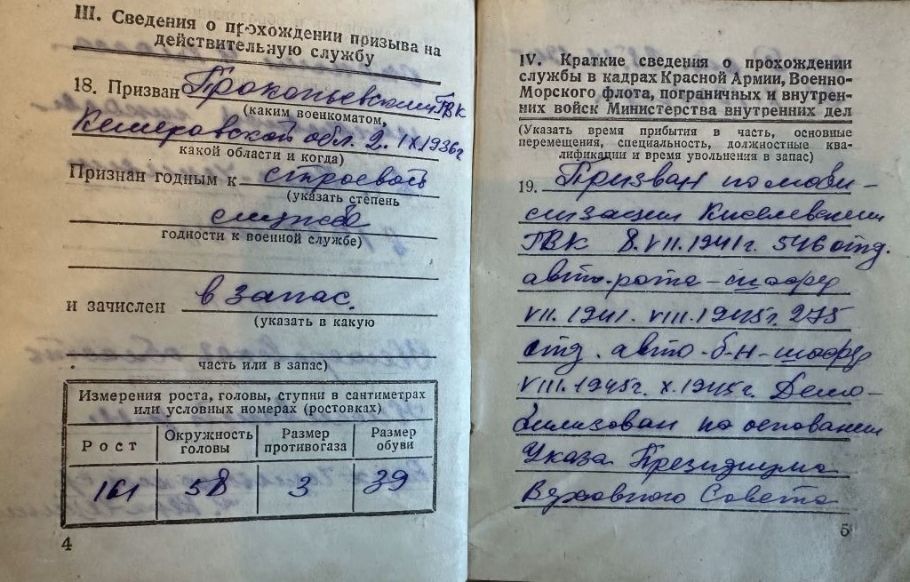 III. Сведения о прохождении призыва на
действительную службу
18. Призван Прокопьевским ГВК
(каким военкоматом,
Кемеровской обл. 2. IX 1936г
какой области и когда)
Признан годным к строевой
(указать степень
службе
годности к военной службе)
и зачислен в запас.
(указать в какую
часть или в запас)
Измерения роста, головы, ступни в сантиметрах
или условных номерах (ростовках)
Рост Окружность головы Размер противогаза Размер обуви
161 58 3 39
4
IV. Краткие сведения о прохождении
службы в кадрах Красной Армии, Военно-
Морского флота, пограничных и внутрен-
них войск Министерства внутренних дел
(Указать время прибытия в часть, основные
перемещения, специальность, должностные ква-
лификации и время увольнения в запас)
19. Призван по моби-
лизации Киселевским
ГВК 8. VII. 1941г. 546 отд.
авто-рота - шофер
VII. 1941. VIII. 1945г. 275
отд. авто-б-н - шофер
VIII. 1945г. X. 1945г. Демо-
билизован по основании
Указа Президиума
Верховного Совета
5